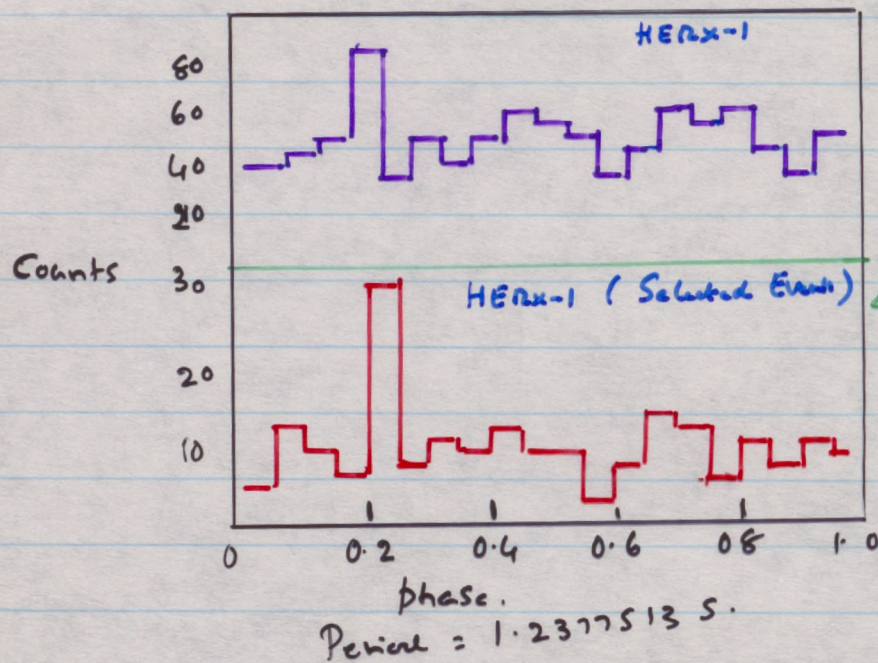 HERX-1
80
60
40
20
Counts
30
HERX-1 ( Selected Events )
20
10
0 0.2 0.4 0.6 0.8 1.0
phase.
Period = 1.2377513 S.